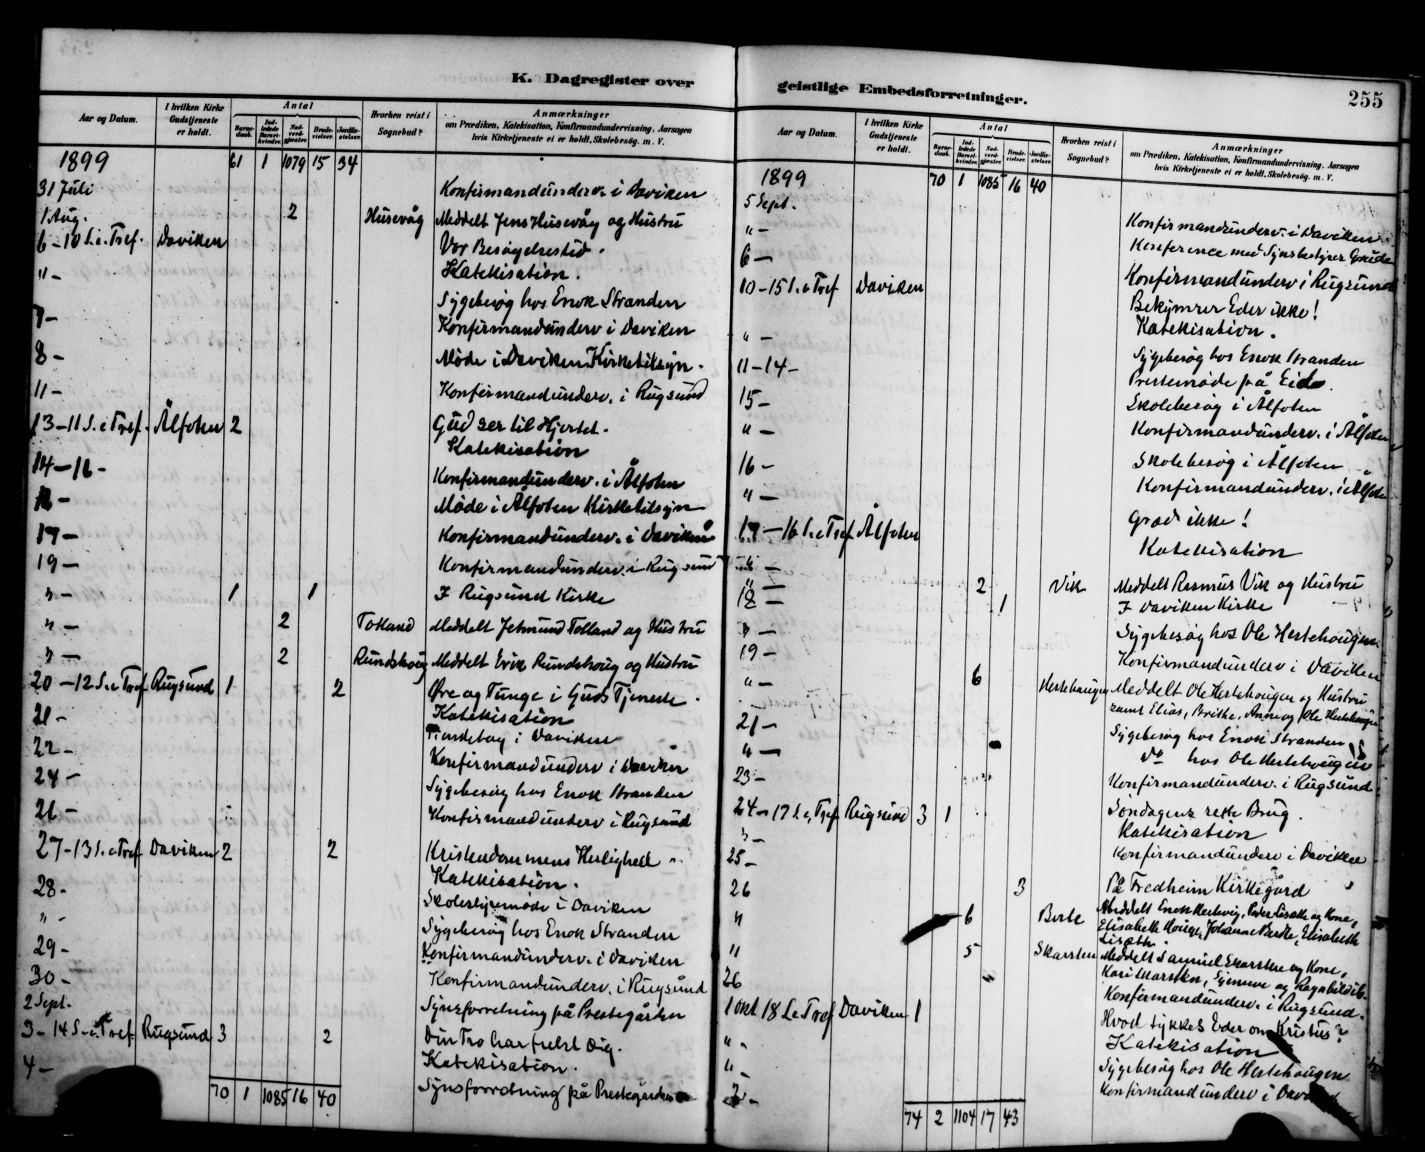 K. Dagregister over
Aar og Datum. I hvilken Kirke Gudstjeneste er holdt. Antal Barnedaab. Indledede Barselkvinder. Nadverdgjester. Brudevielser. Jordfæstelser. Hvorhen reist i Sognebud? Anmærkninger om Prædiken, Katekisation, Konfirmandundervisning, Aarsagen hvis Kirketjeneste ei er holdt, Skolebesøg. m. V.
1899 61 1 1079 15 34
31 Juli Konfirmandunderv. i Daviken
1 Aug. 2 Husevåg Meddelt Jens Husevåg og Hustru
6 - 10 S. e Tref. Daviken Vor Besøgelsestid.
" - Katekisation.
Sygebesøg hos Enok Stranden
7 - Konfirmandunderv i Daviken
8 - Møde i Daviken Kirketilsyn.
11 - Konfirmandunderv. i Rugsund
13 - 11 S. e Tref. Ålfoten 2 Gud ser til Hjertet.
Katekisation
14 - 16 - Konfirmandunderv. i Ålfoten
Møde i Ålfoten Kirketilsyn
17 - Konfirmandunderv. i Daviken
19 - Konfirmandunderv. i Rugsund
" - 1 1 I Rugsund Kirke
" - 2 Totland Meddelt Jetmund Totland og Hustru
" - 2 Rundehoug Meddelt Erik Rundehoug og Hustru
20 - 12 S. e Tref Rugsund 1 2 Øre og Tunge i Guds Tjeneste.
21 - Katekisation
i Daviken
22 - Konfirmandunderv i Daviken
24 - Sygebesøg hos Enok Stranden
26 - Konfirmandunderv i Rugsund
27 - 13 S. e Tref Daviken 2 2 Kristendommens Herlighed
28 - Katekisation.
" - Skolestyremøde i Daviken
Sygebesøg hos Enok Stranden
29 - Konfirmandunderv. i Daviken
30 - Konfirmandunderv. i Rugsund
2 Sept. Synsforretning på Prestegården
3 - 14 S. e. Tref Rugsund 3 2 Din Tro har frelst Dig.
4 - Katekisation.
Synsforretning på Prestegården
70 1 1085 16 40
geistlige Embedsforretninger.
255
Aar og Datum. I hvilken Kirke Gudstjeneste er holdt. Antal Barnedaab. Indledede Barselkvinder. Nadverdgjester. Brudevielser. Jordfæstelser. Hvorhen reist i Sognebud? Anmærkninger om Prædiken, Katekisation, Konfirmandundervisning, Aarsagen hvis Kirketjeneste ei er holdt, Skolebesøg. m. V.
1899 70 1 1085 16 40
5 Sept. Konfirmandunderv. i Daviken
" - Konference med
6 - Konfirmandunderv i Rugsund
10 - 15 S. e Tref Daviken Bekymrer Eder ikke!
" - Katekisation.
Sygebesøg hos Enok Stranden
11 - 14 - Prestemøde på Eid.
15 - Skolebesøg i Ålfoten
" - Konfirmandunderv. i Ålfoten
16 - Skolebesøg i Ålfoten
" - Konfirmandunderv. i Ålfoten
17 - 16 S. e Tref Ålfoten Græd ikke!
" - Katekisation
" - 2 Vik Meddelt Rasmus Vik og Hustru
18 - 1 I Daviken Kirke
" - Sygebesøg hos Ole Hestehougen
19 - Konfirmandunderv i Daviken
" - 6 Hestehaugen Meddelt Ole Hestehougen og Hustru
samt Elias, Brithe, Anne og Ole Hestehougen
21 - Sygebesøg hos Enok Stranden
" - Do hos Ole Hestehougen
23 - Konfirmandunderv. i Rugsund
24 - 17 S. e. Tref Rugsund 3 1 Søndagens rette Brug.
" - Katekisation
25 - Konfirmandunderv i Daviken
26 3 På Fredheim Kirkegård
" 6 Meddelt Enok
Elisabeth Johanne Elisabeth
" 5 Skarsten Meddelt Samuel Skarsten og Kone,
Kari Skarsten,
26 Konfirmandunderv. i Rugsund.
1 Okt 18 S. e Tref Daviken 1 Hvad tykkes Eder om Kristus?
" - Katekisation
" - Sygebesøg hos Ole Hestehougen
2 - Konfirmandunderv i
74 2 1104 17 43